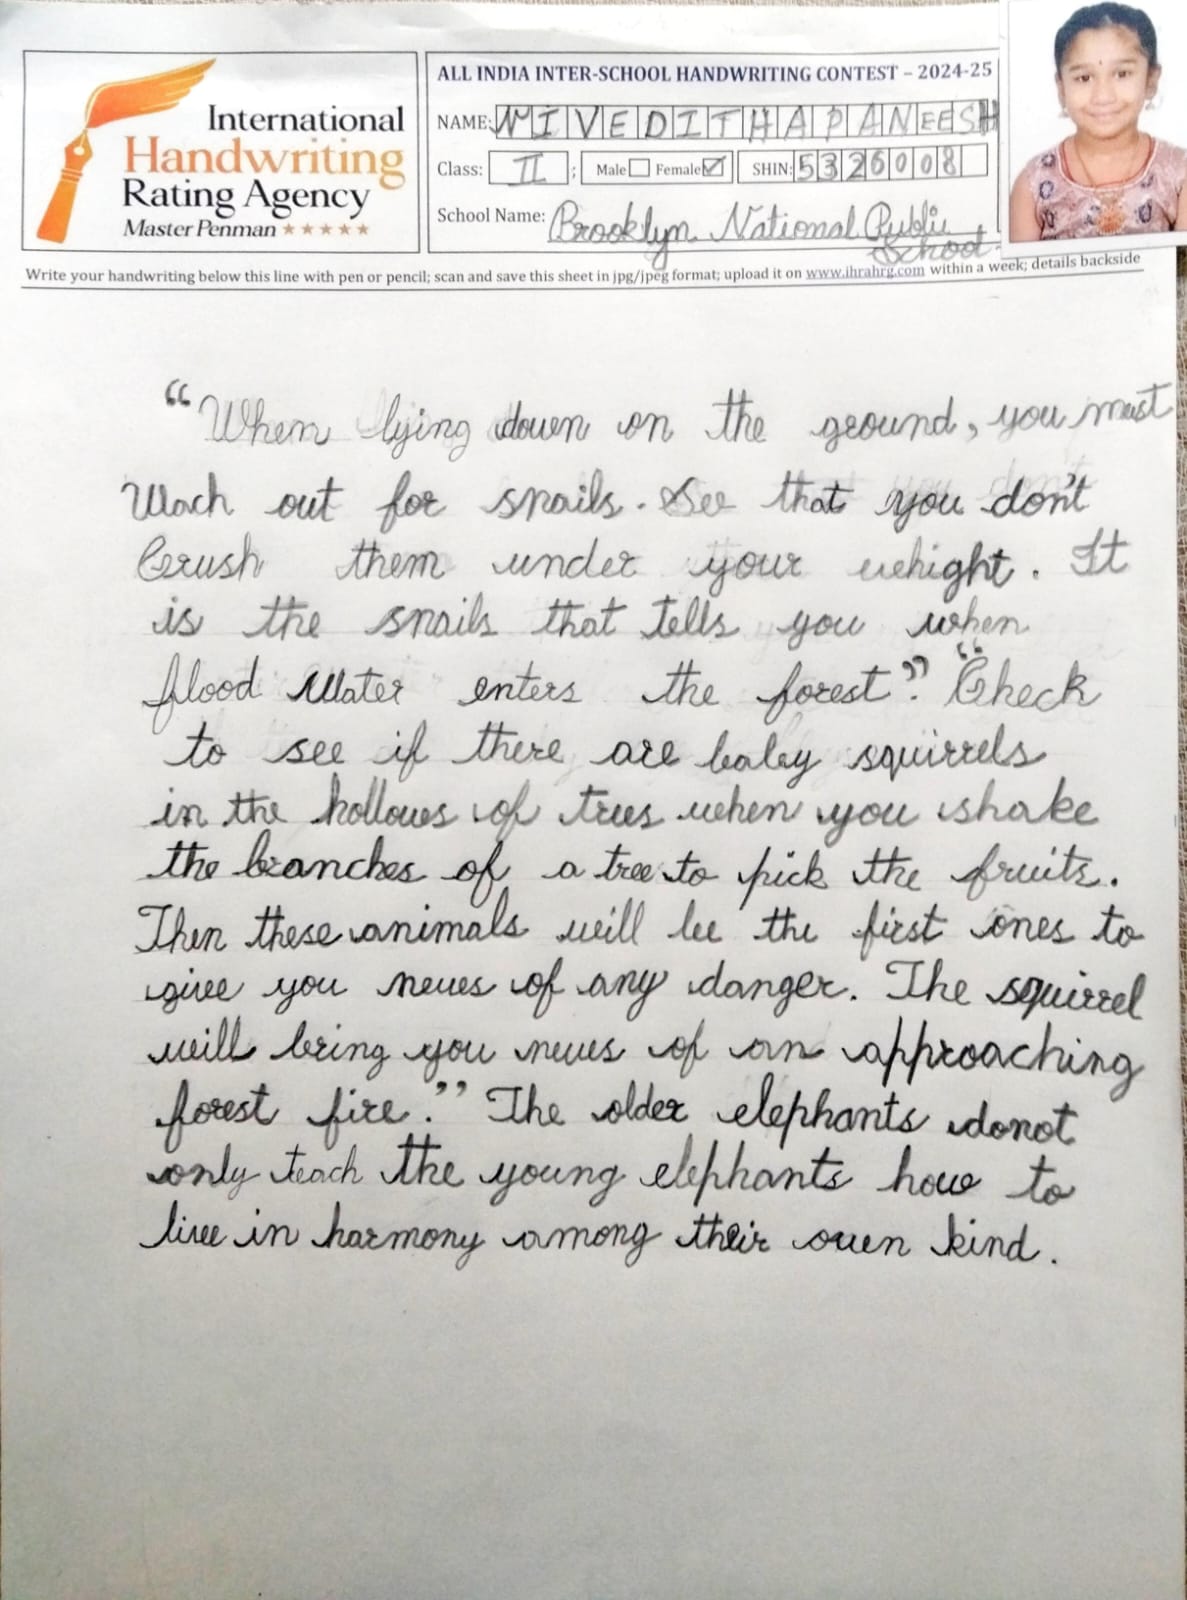 International
Handwriting
Rating Agency
Master Penman ★★★★★
ALL INDIA INTER-SCHOOL HANDWRITING CONTEST – 2024-25
NAME: NIVEDITHA P ANEESH
Class: II ; Male Female ✓ SHIN: 5326008
School Name: Brooklyn National Public
School
Write your handwriting below this line with pen or pencil; scan and save this sheet in jpg/jpeg format; upload it on www.ihrahrg.com within a week; details backside
“When lying down on the ground, you must
Wach out for snails. See that you don't
Crush them under your wehight. It
is the snails that tells you when
flood Water enters the forest”. “Check
to see if there are baby squirrels
in the hollows of trees when you shake
the branches of a tree to pick the fruits.
Then these animals will be the first ones to
give you news of any danger. The squirrel
will bring you news of an approaching
forest fire.” The older elephants donot
only teach the young elephants how to
live in harmony among their own kind.